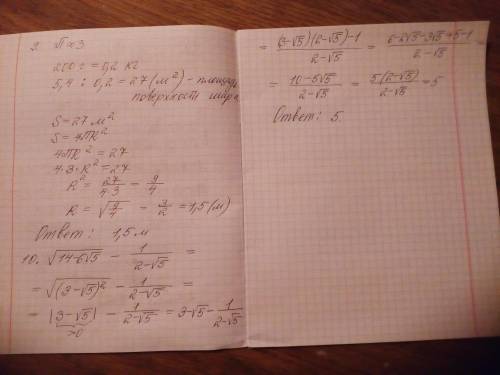 2. π≈3
200 г = 0,2 кг
5,4 : 0,2 = 27 (м²) - площадь
поверхности шара
S = 27 м²
S = 4πR²
4πR² = 27
4·3·R² = 27
R² = 27/4·3 = 9/4
R = √9/4 = 3/2 = 1,5 (м)
Ответ: 1,5 м
10. √14-6√5 - 1/2-√5 =
= √(3-√5)² - 1/2-√5 =
= |3-√5| - 1/2-√5 = 3-√5 - 1/2-√5
>0
= (3-√5)(2-√5)-1/2-√5 = 6-2√5-3√5+5-1/2-√5
= 10-5√5/2-√5 = 5(2-√5)/2-√5 = 5
Ответ: 5.